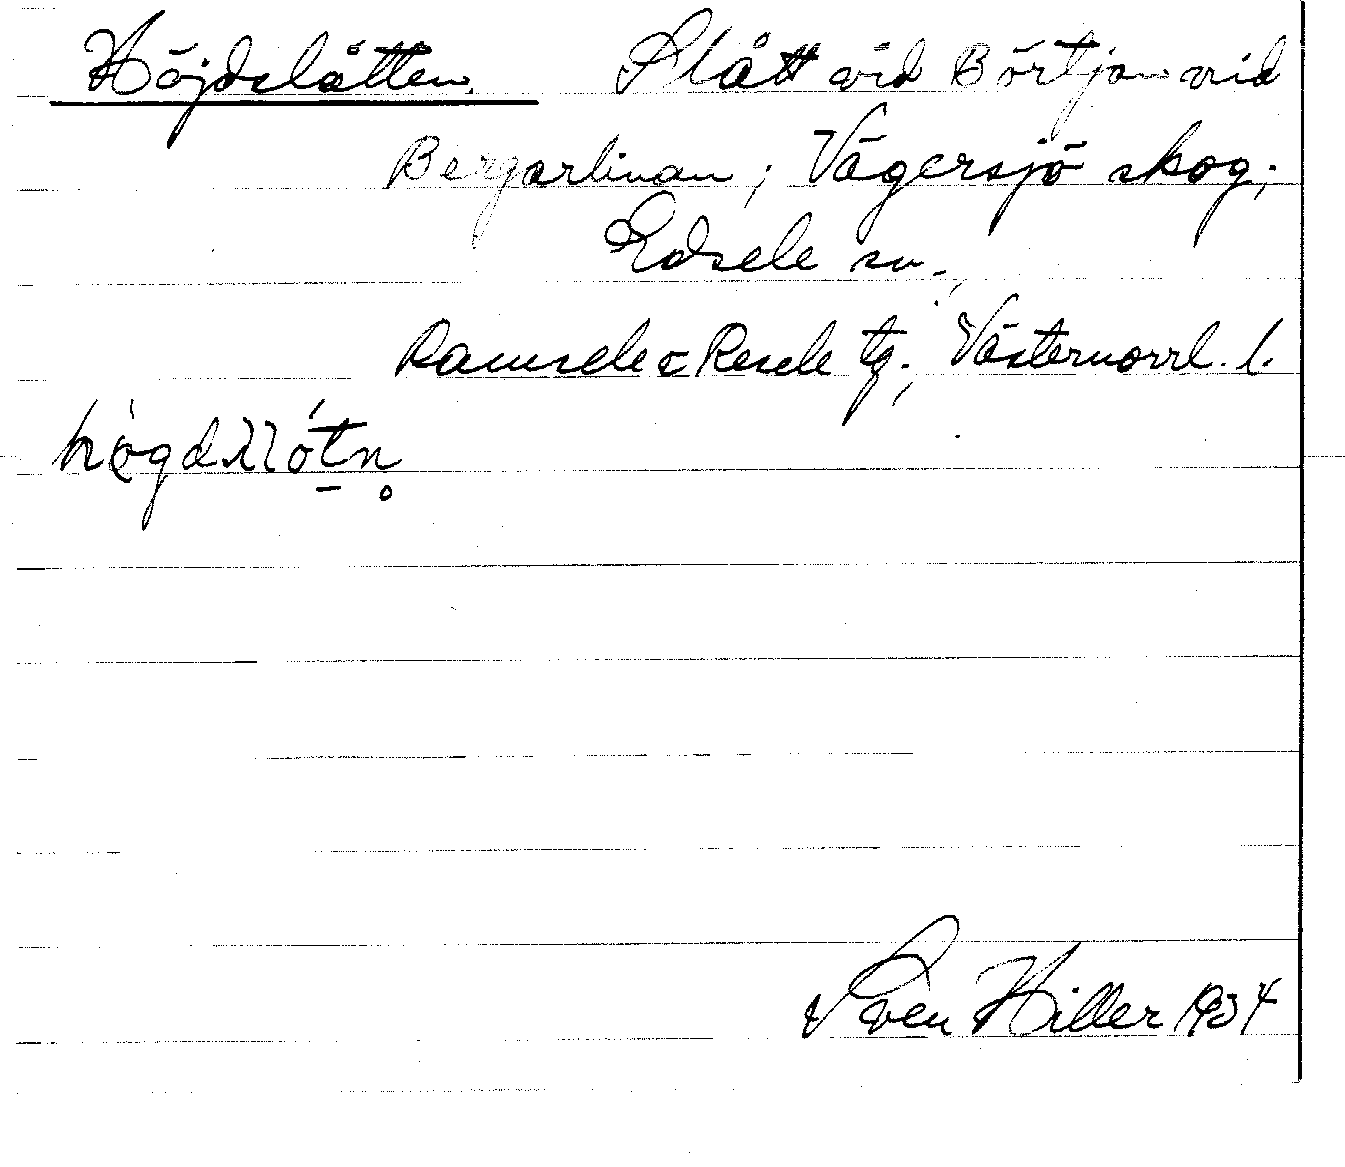 Höjdslåtten. Slått vid Börtjan vid
Bergarlinan; Vägersjö skog;
Edsele sn.,
Ramsele o Resele tg., Västernorrl. l.
Sven Hiller 1934